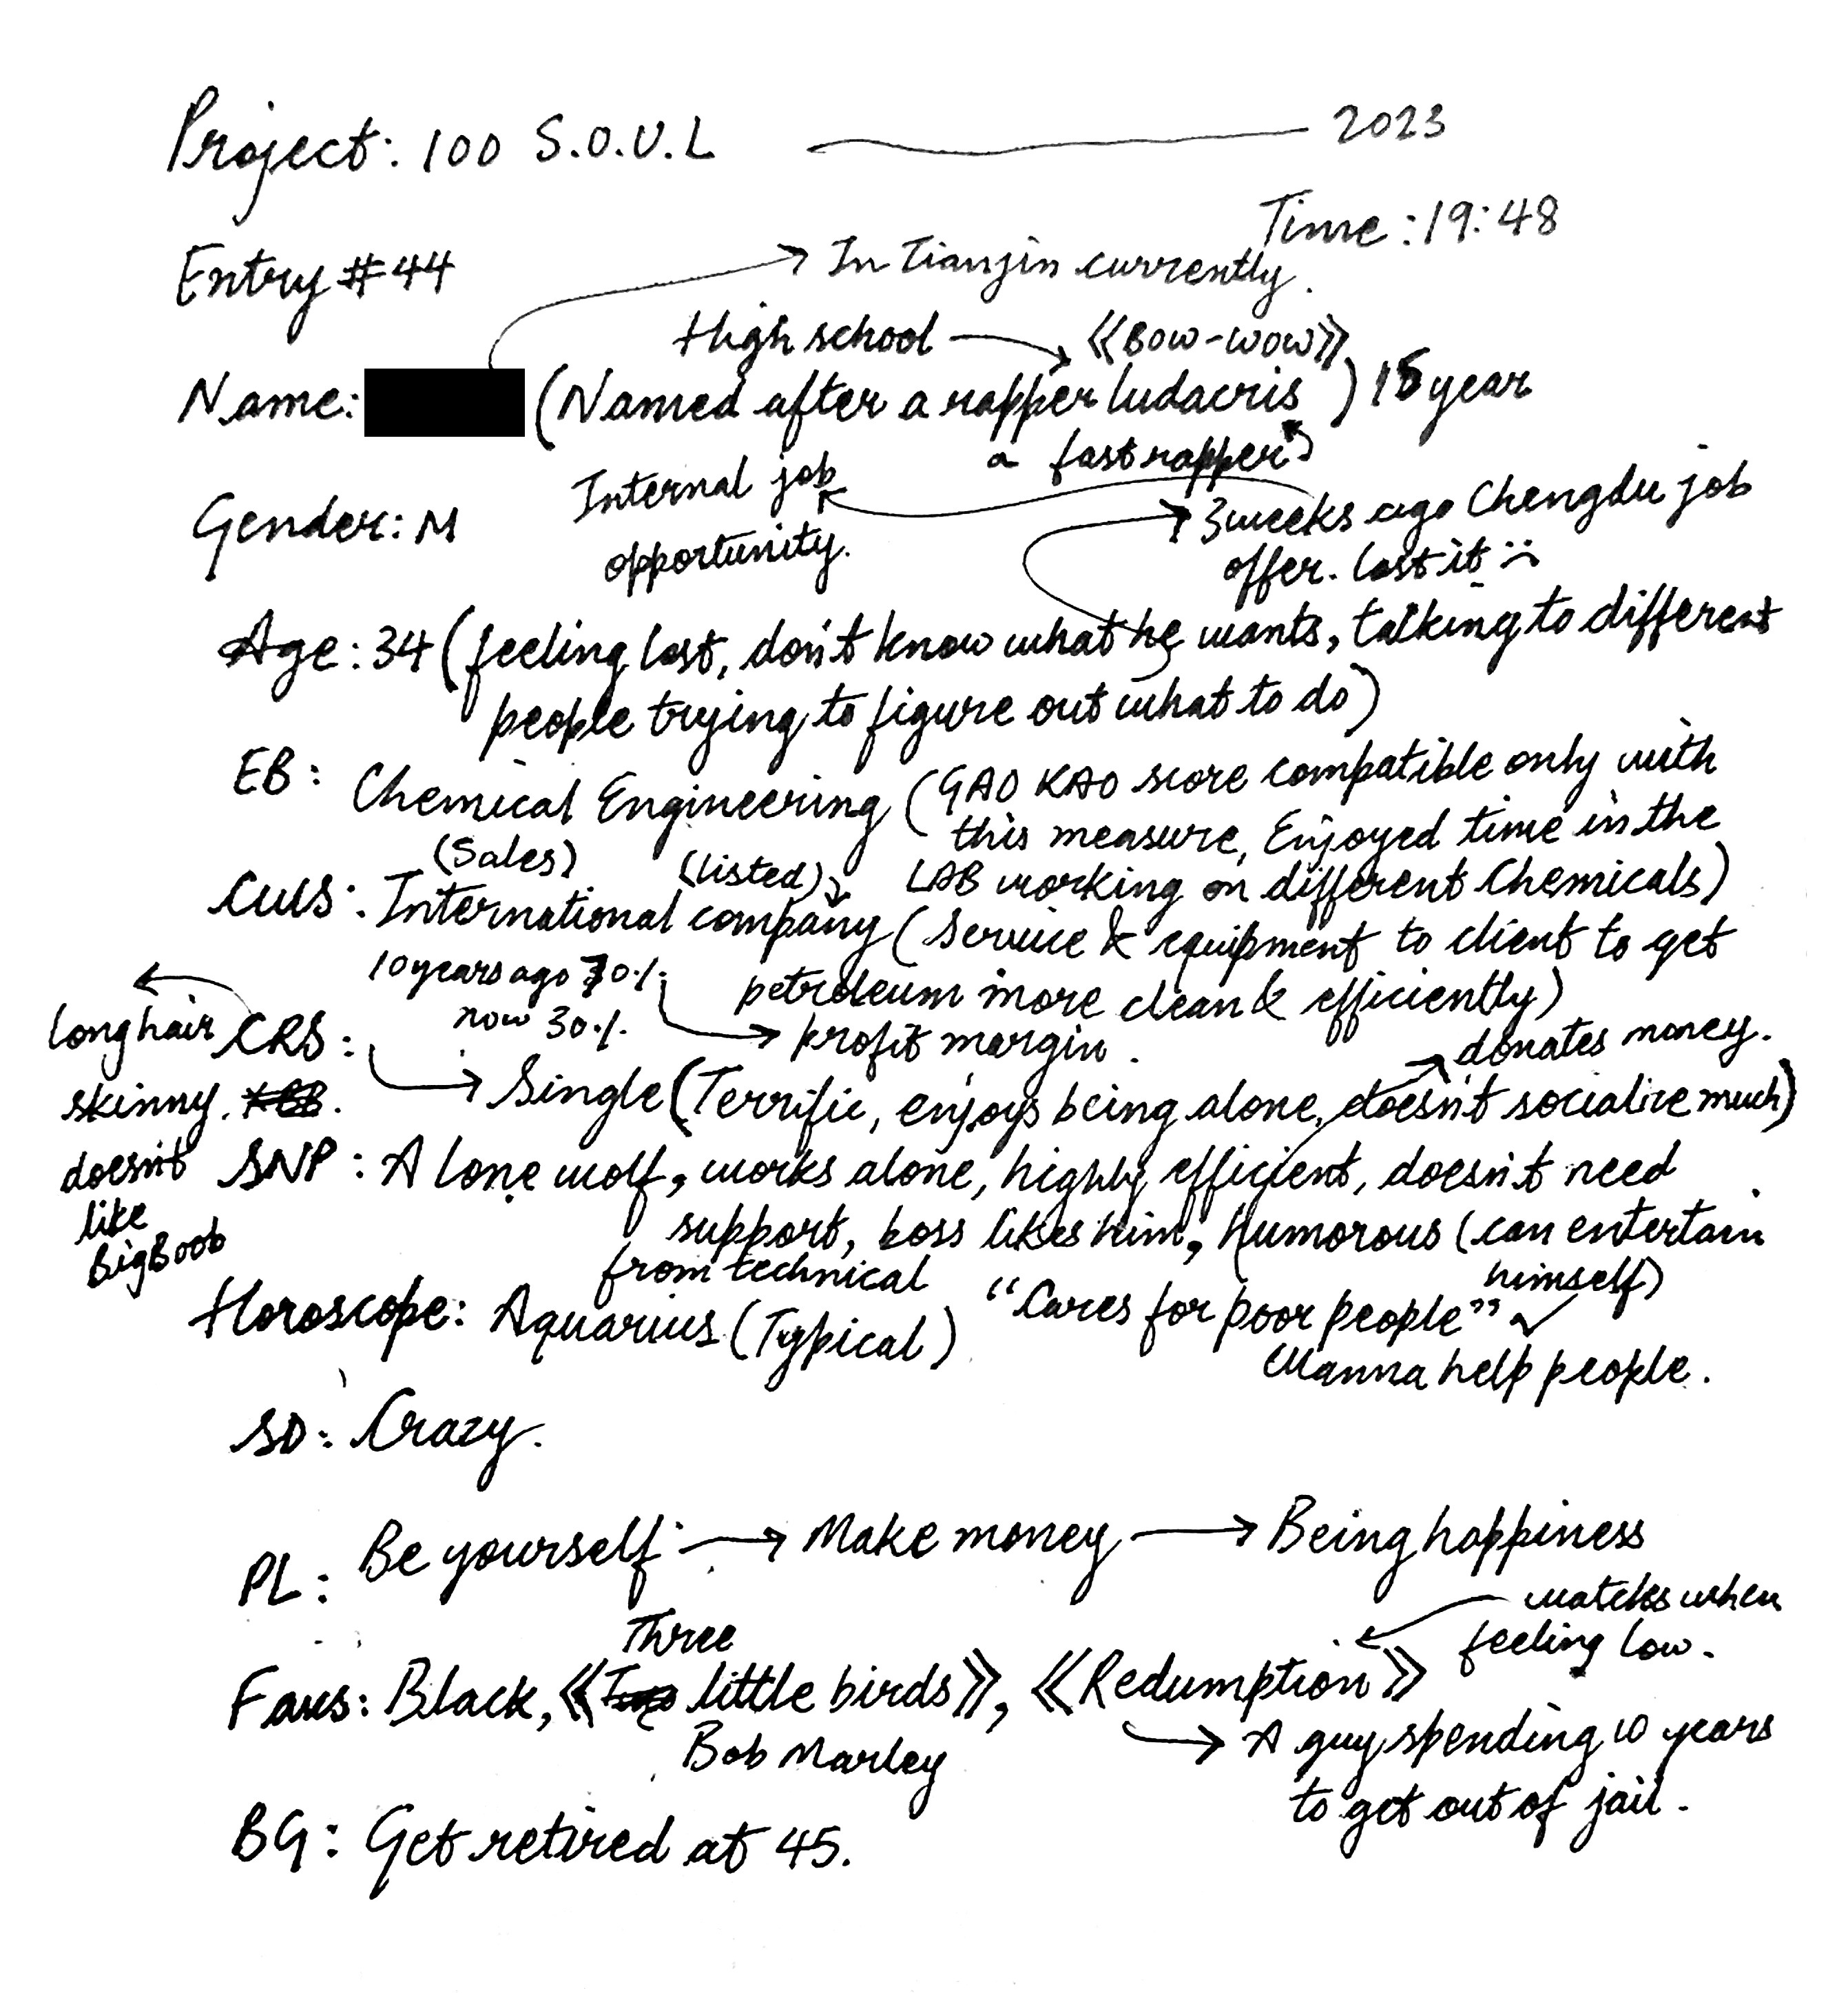 Project: 100 S.O.U.L —— 2023
Time: 19:48
Entry #44
→ In Tianjin currently.
High school → 《Bow-wow》
Name: (Named after a rapper ludacris) 15 year
a fast rapper
Internal job
opportunity.
Gender: M
→ 3 weeks ago Chengdu job
offer. lost it :(
Age: 34 (feeling lost, don't know what he wants, talking to different
people trying to figure out what to do)
EB: Chemical Engineering (GAO KAO score compatible only with
this measure, Enjoyed time in the
LAB working on different Chemicals)
(Sales) (listed)
CWS: International company (Service & equipment to client to get
petroleum more clean & efficiently)
10 years ago 70%
now 30%. → profit margin.
CRS: → Single (Terrific, enjoys being alone, doesn't socialize much)
→ donates money.
long hair
skinny.
doesn't
like
BigBoob
SNP: A lone wolf, works alone, highly efficient, doesn't need
support, boss likes him, humorous (can entertain
himself)
from technical
Horoscope: Aquarius (Typical) "Cares for poor people" ✓
Wanna help people.
SD: Crazy.
PL: Be yourself → Make money → Being happiness
watches when
feeling low.
Three
Favs: Black, 《little birds》, 《Redumption》
Bob Marley
→ A guy spending 10 years
to get out of jail.
BG: Get retired at 45.